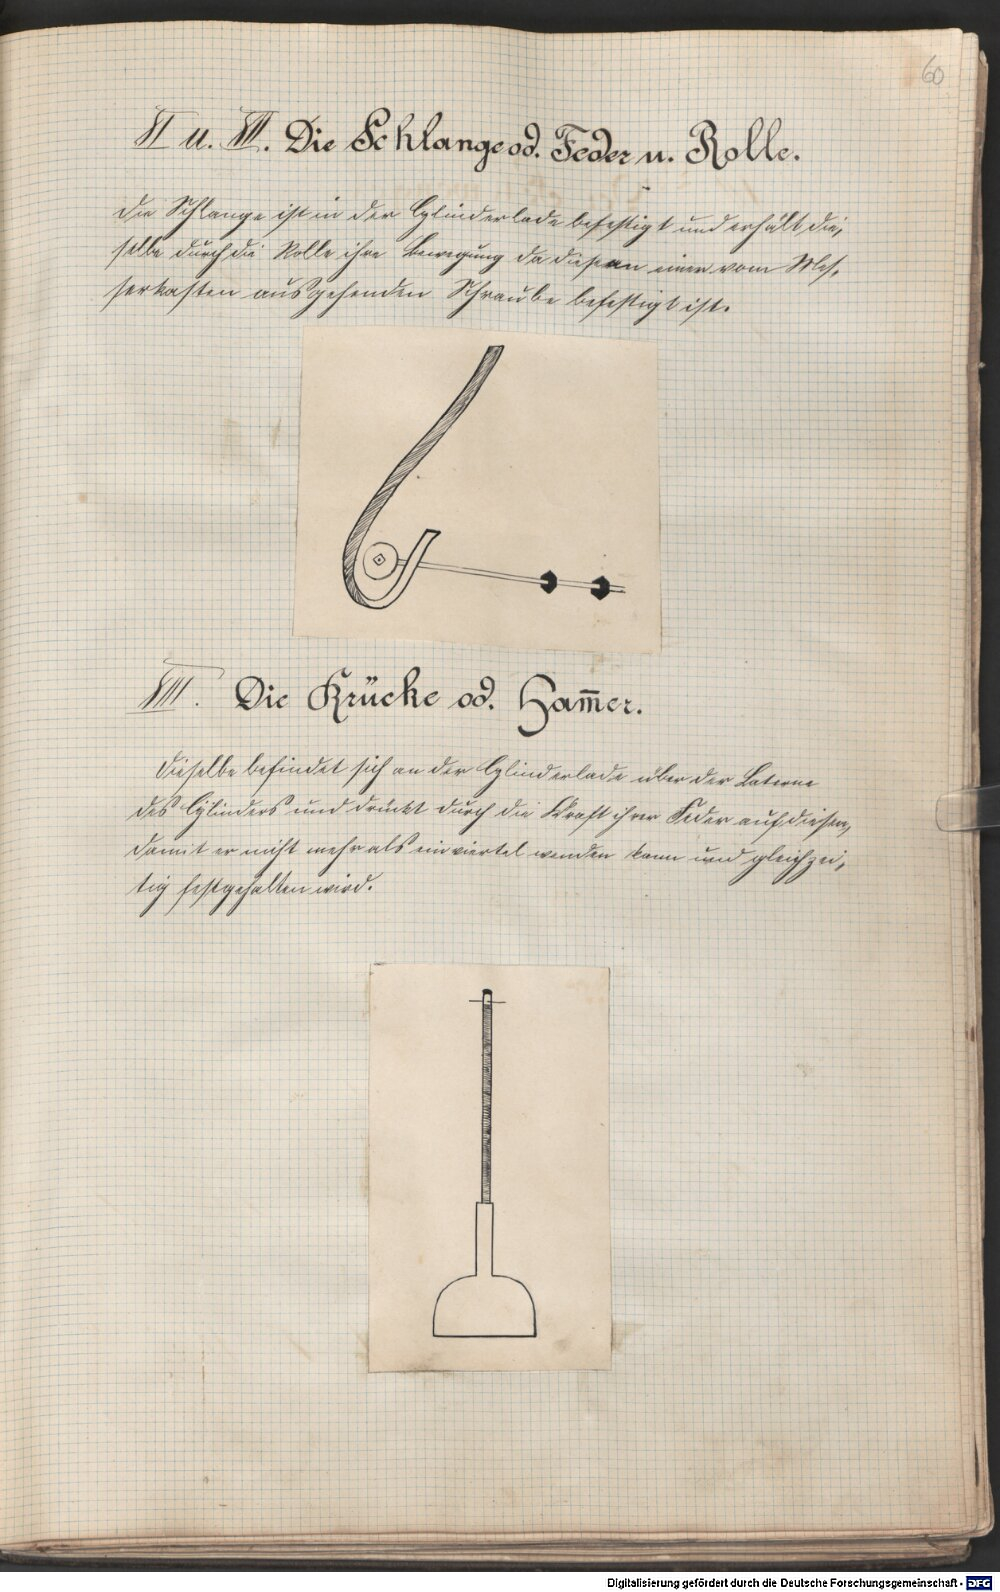 60
VI u. VII. Die Schlange od. Feder u. Rolle.
Die Schlange ist in der Cylinderlade befestigt und erhält die,
selbe durch die Rolle ihre Bewegung da diese an einer vom Mes,
serkasten ausgehenden Schraube befestigt ist.
VIII. Die Krücke od. Ham̄er.
Dieselbe befindet sich an der Cylinderlade über der Laterne
des Cylinders und drückt durch die Kraft ihrer Feder auf diesen,
damit er nicht mehr als ein viertel wenden kann und gleichzei,
tig festgehalten wird.
Digitalisierung gefördert durch die Deutsche Forschungsgemeinschaft - DFG